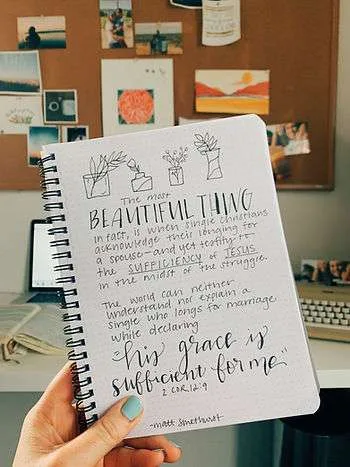 The most
BEAUTIFUL THING
in fact, is when single Christians
acknowledge their longing for
a spouse—and yet testify to
the SUFFICIENCY of JESUS
in the midst of the struggle.
The world can neither
understand not explain a
single who longs for marriage
while declaring
"his grace is
sufficient for me"
2 COR. 12:9
-matt smethurst